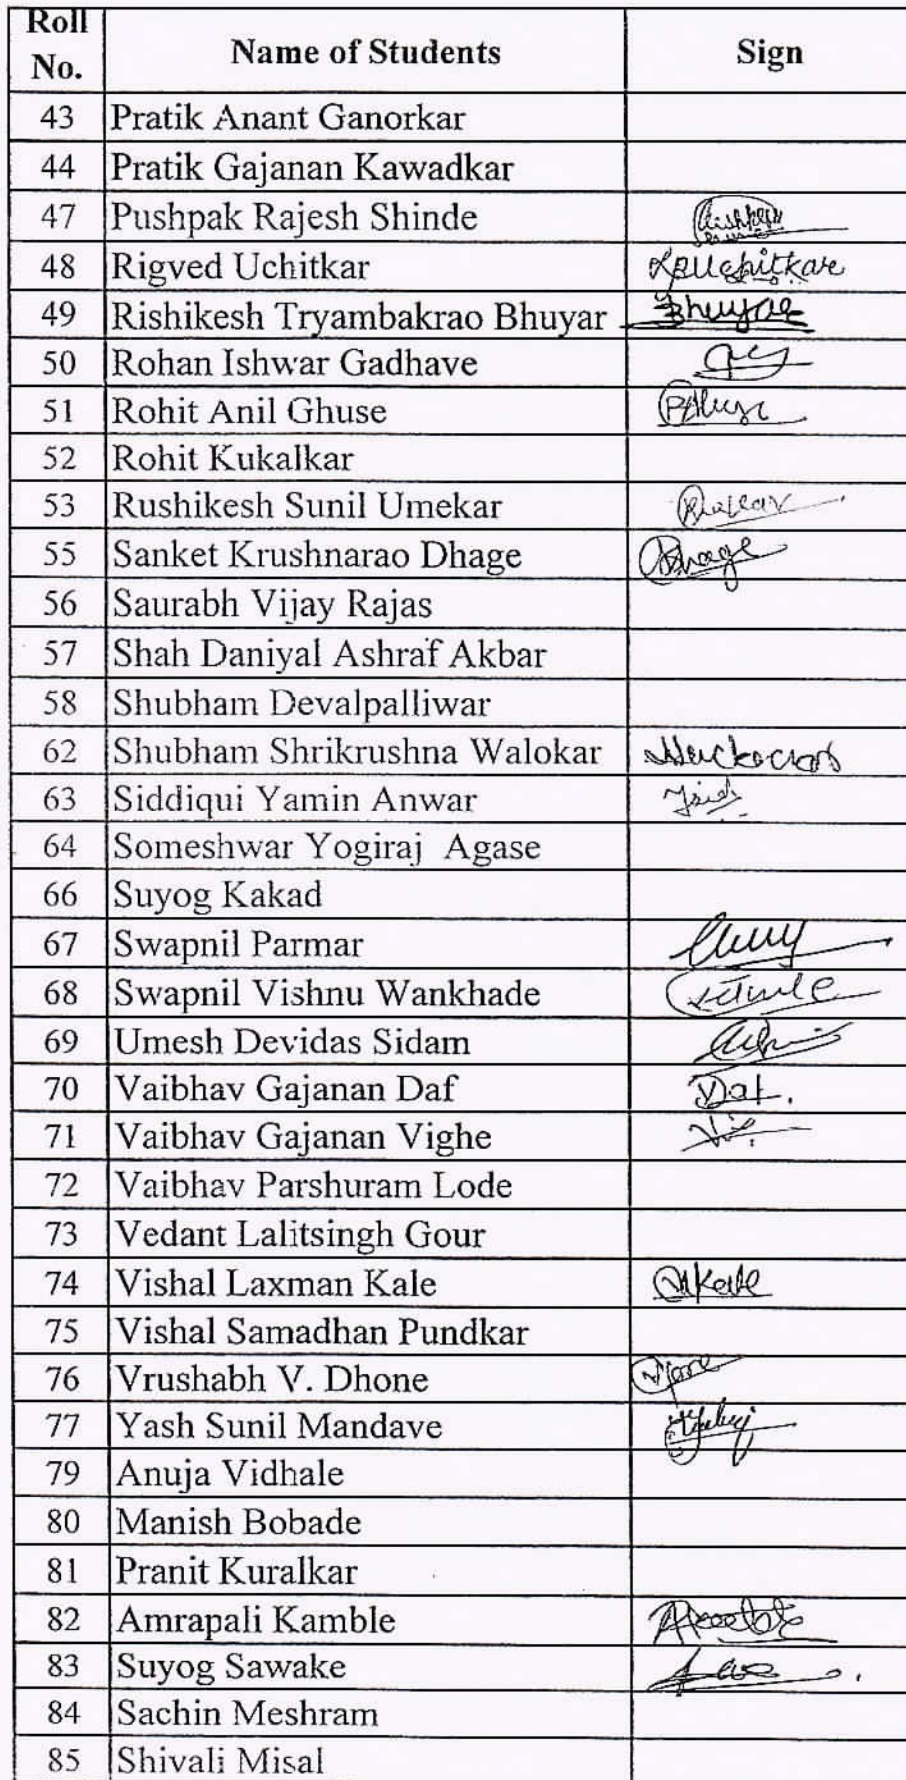 Roll No. Name of Students Sign
43 Pratik Anant Ganorkar
44 Pratik Gajanan Kawadkar
47 Pushpak Rajesh Shinde
48 Rigved Uchitkar
49 Rishikesh Tryambakrao Bhuyar
50 Rohan Ishwar Gadhave
51 Rohit Anil Ghuse
52 Rohit Kukalkar
53 Rushikesh Sunil Umekar
55 Sanket Krushnarao Dhage
56 Saurabh Vijay Rajas
57 Shah Daniyal Ashraf Akbar
58 Shubham Devalpalliwar
62 Shubham Shrikrushna Walokar
63 Siddiqui Yamin Anwar
64 Someshwar Yogiraj Agase
66 Suyog Kakad
67 Swapnil Parmar
68 Swapnil Vishnu Wankhade
69 Umesh Devidas Sidam
70 Vaibhav Gajanan Daf Daf.
71 Vaibhav Gajanan Vighe
72 Vaibhav Parshuram Lode
73 Vedant Lalitsingh Gour
74 Vishal Laxman Kale
75 Vishal Samadhan Pundkar
76 Vrushabh V. Dhone
77 Yash Sunil Mandave
79 Anuja Vidhale
80 Manish Bobade
81 Pranit Kuralkar
82 Amrapali Kamble
83 Suyog Sawake
84 Sachin Meshram
85 Shivali Misal